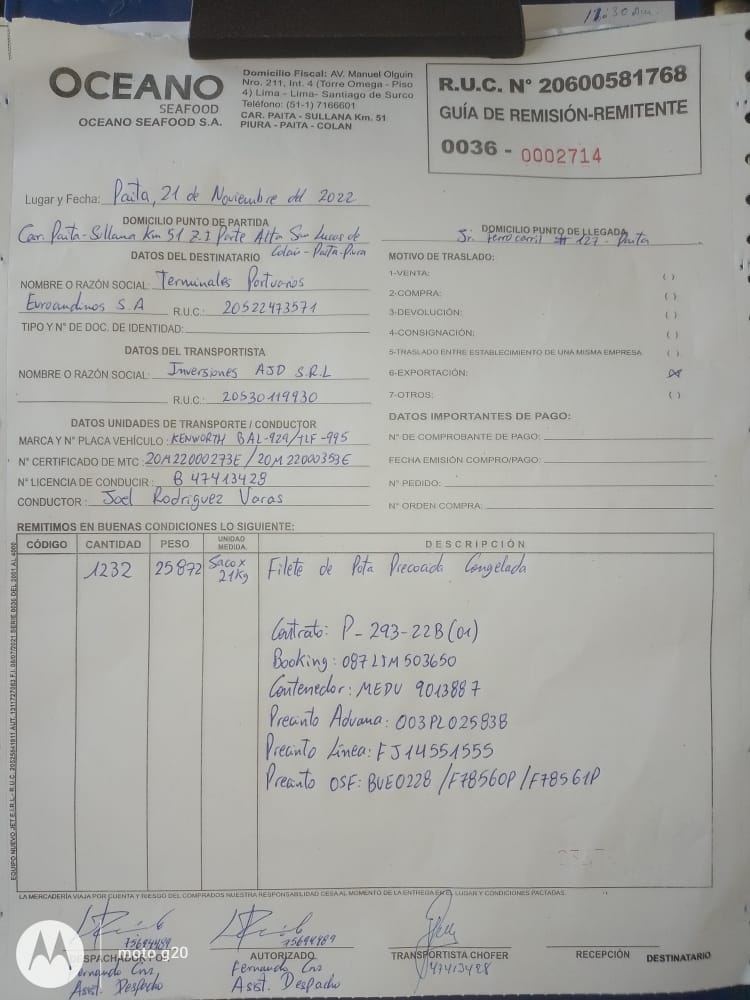 11:30 am.
OCEANO
SEAFOOD
OCEANO SEAFOOD S.A.
Domicilio Fiscal: AV. Manuel Olguin
Nro. 211, Int. 4 (Torre Omega - Piso
4) Lima - Lima- Santiago de Surco
Teléfono: (51-1) 7166601
CAR. PAITA - SULLANA Km. 51
PIURA - PAITA - COLAN
R.U.C. N° 20600581768
GUÍA DE REMISIÓN-REMITENTE
0036 - 0002714
Lugar y Fecha: Paita, 21 de Noviembre del 2022
DOMICILIO PUNTO DE PARTIDA
Car. Paita-Sullana Km 51 Z.I Parte Alta San Lucas de
Colan - Paita-Piura
DOMICILIO PUNTO DE LLEGADA
Jr. Ferrocarril # 127 - Paita
DATOS DEL DESTINATARIO
NOMBRE O RAZÓN SOCIAL: Terminales Portuarios
Euroandinos S.A R.U.C.: 20522473571
TIPO Y N° DE DOC. DE IDENTIDAD:
MOTIVO DE TRASLADO:
1-VENTA: ( )
2-COMPRA: ( )
3-DEVOLUCIÓN: ( )
4-CONSIGNACIÓN: ( )
5-TRASLADO ENTRE ESTABLECIMIENTO DE UNA MISMA EMPRESA ( )
6-EXPORTACIÓN: (X)
7-OTROS: ( )
DATOS DEL TRANSPORTISTA
NOMBRE O RAZÓN SOCIAL: Inversiones AJD S.R.L
R.U.C.: 20530119930
DATOS UNIDADES DE TRANSPORTE / CONDUCTOR
MARCA Y N° PLACA VEHÍCULO: KENWORTH BAL-929/TLF-995
N° CERTIFICADO DE MTC: 20M22000273E / 20M22000353E
N° LICENCIA DE CONDUCIR: B 47413428
CONDUCTOR: Joel Rodriguez Varas
DATOS IMPORTANTES DE PAGO:
N° DE COMPROBANTE DE PAGO:
FECHA EMISIÓN COMPRO/PAGO:
N° PEDIDO:
N° ORDEN COMPRA:
REMITIMOS EN BUENAS CONDICIONES LO SIGUIENTE:
CÓDIGO CANTIDAD PESO UNIDAD MEDIDA DESCRIPCIÓN
1232 25872 Saco x 21Kg Filete de Pota Precocida Congelada
Contrato: P-293-22B(01)
Booking: 087LIM503650
Contenedor: MEDU 9013887
Precinto Aduana: 003PL025838
Precinto Línea: FJ14551555
Precinto OSF: BUE0228 /F78560P /F78561P
LA MERCADERÍA VIAJA POR CUENTA Y RIESGO DEL COMPRADOS NUESTRA RESPONSABILIDAD CESA AL MOMENTO DE LA ENTREGA EN EL LUGAR Y CONDICIONES PACTADAS.
75694489
DESPACHADO
Fernando Cruz
Asist. Despacho
75694489
AUTORIZADO
Fernando Cruz
Asist. Despacho
TRANSPORTISTA CHOFER
47413428
RECEPCIÓN DESTINATARIO
moto g20